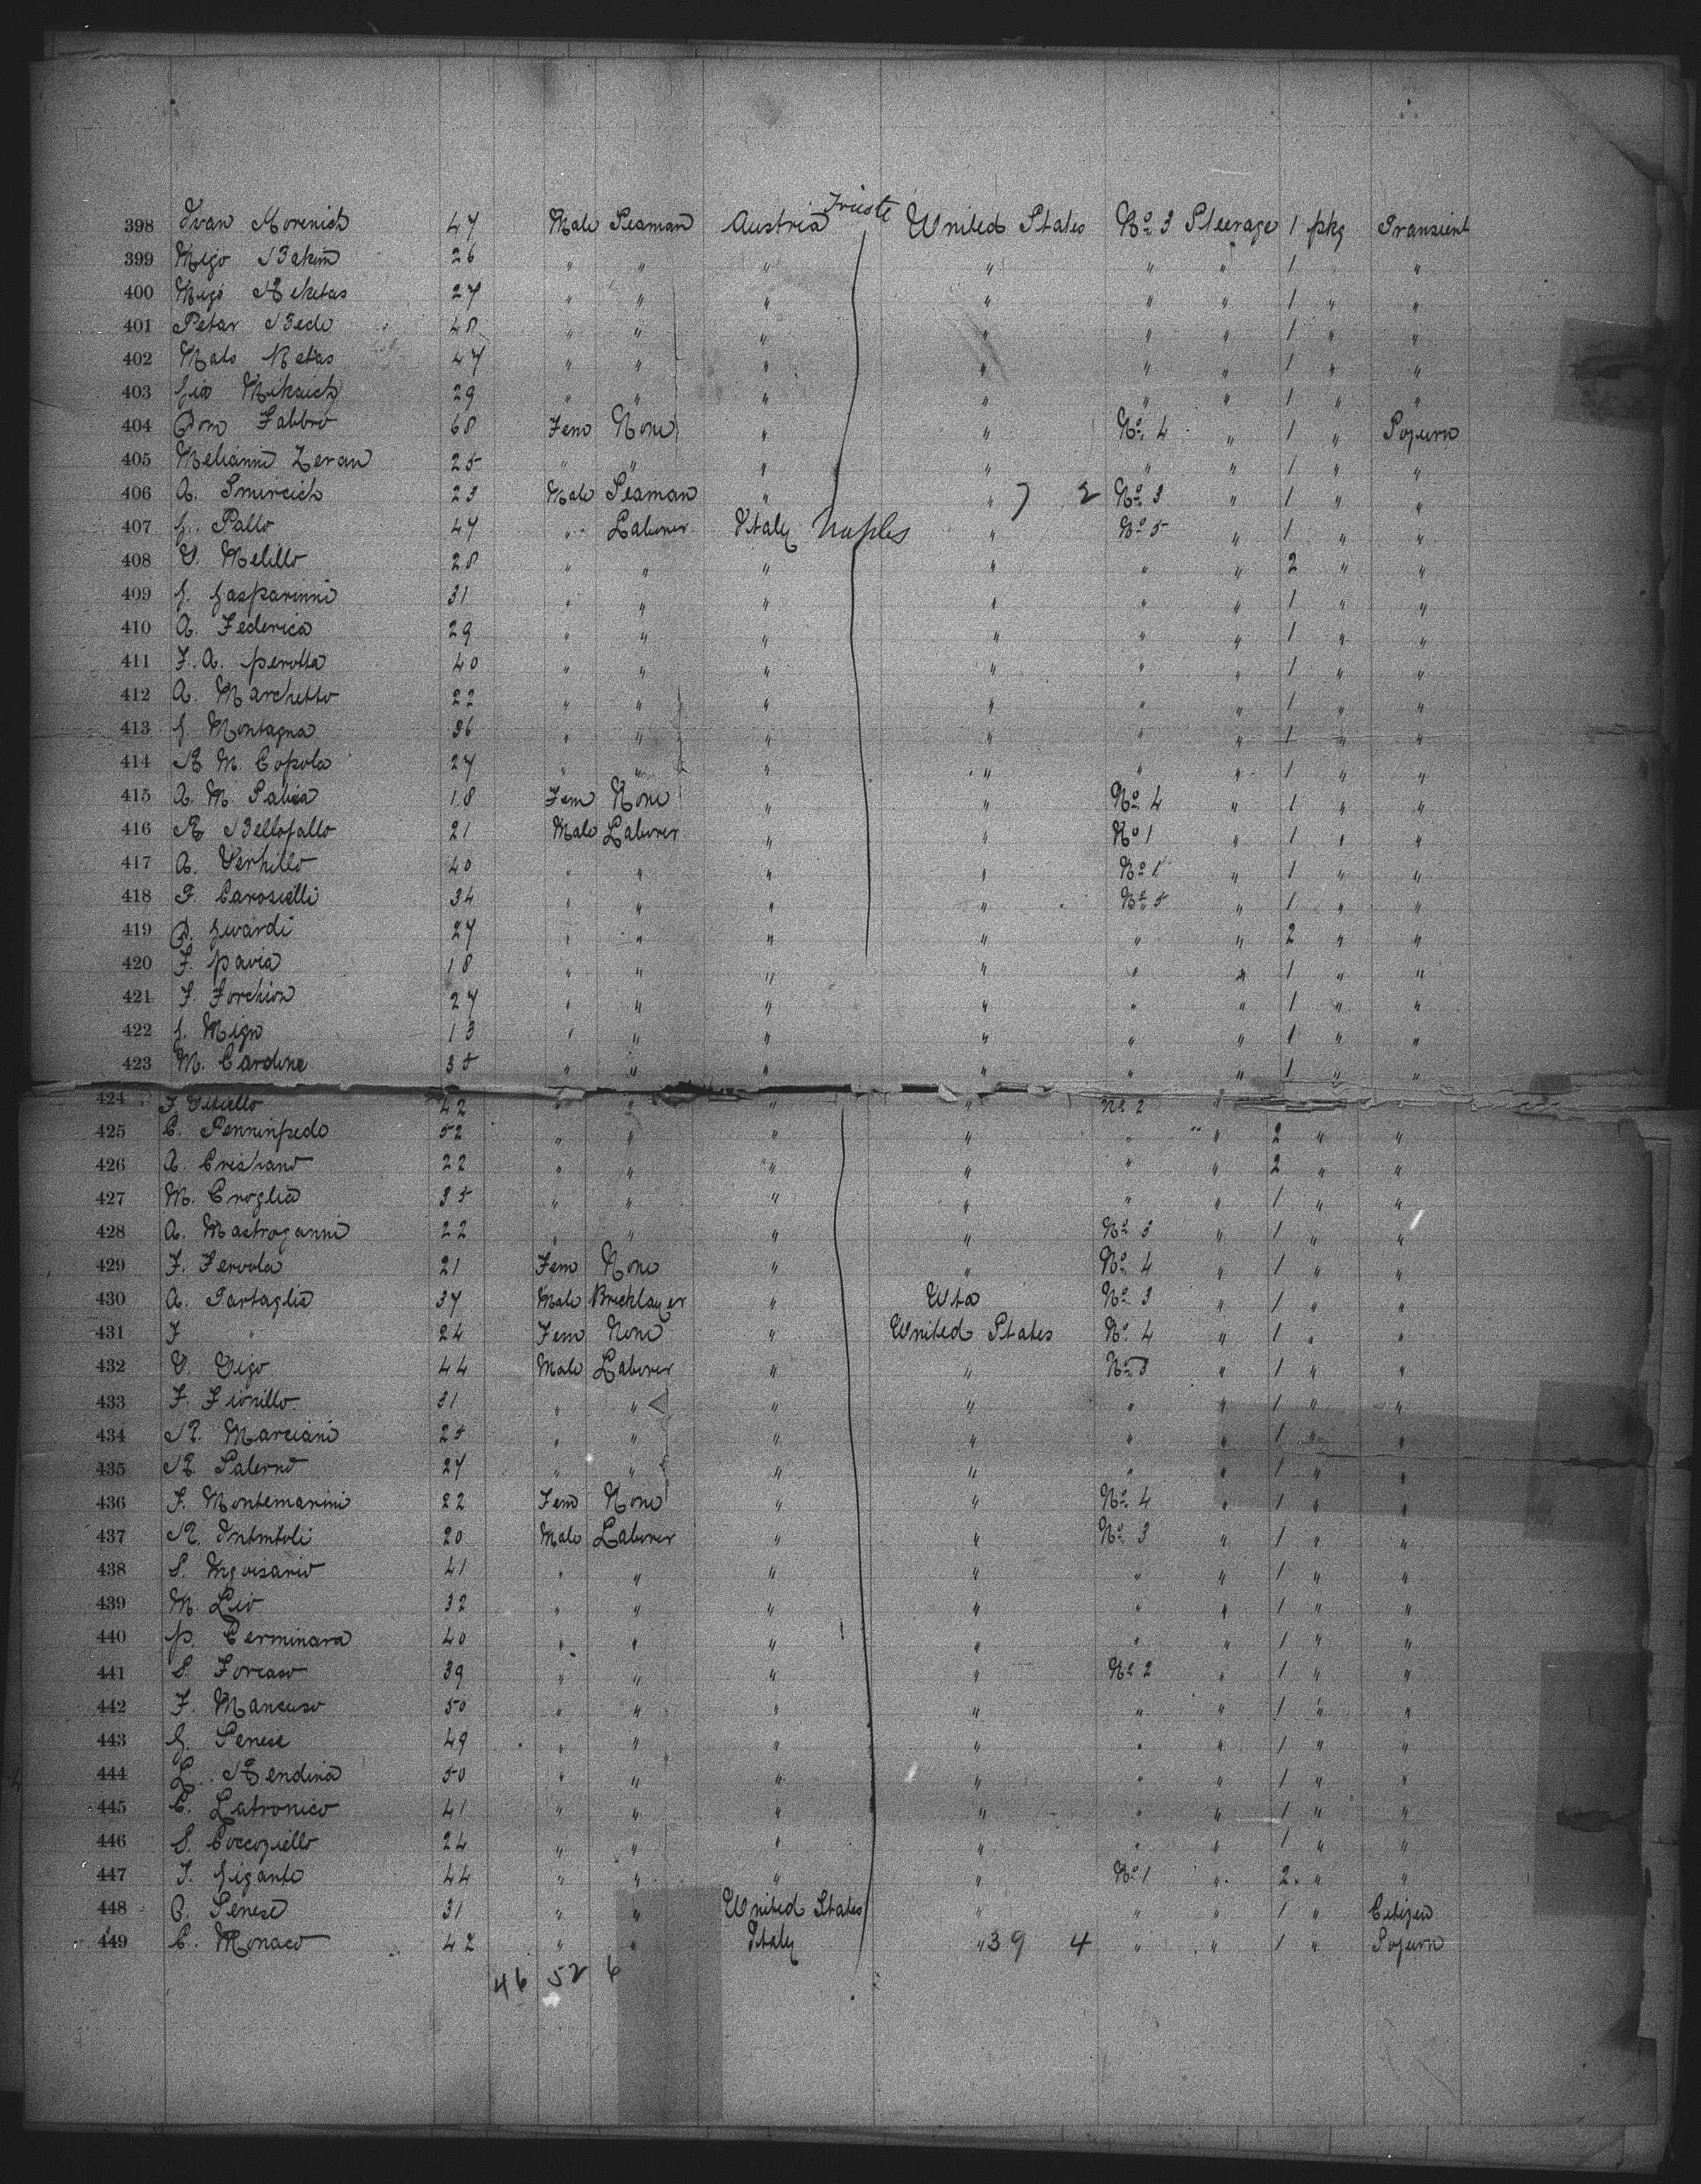 Trieste
398 Ivan Morenich 47 Male Seaman Austria United States No 3 Steerage 1 pkg Transient
399 Migo Bakim 26 " " " " " " 1 "
400 Migo Reketas 27 " " " " " " 1 " "
401 Petar Bedo 48 " " " " " " 1 " "
402 Mato Retas 47 " " " " " " 1 " "
403 Gio Miksich 29 " " " " " " 1 " "
404 Dom Fabbro 68 Fem None " " No 4 " 1 " Sojourn
405 Melianni Zeran 25 " " " " " " 1 " "
406 A. Smircich 23 Male Seaman " " 7 2 No 3 " 1 " "
407 G. Pallo 47 " Laborer Italy Naples " No 5 " 1 " "
408 V. Melillo 28 " " " " " " 2 " "
409 G. Gasparinni 31 " " " " " " 1 " "
410 A. Federica 29 " " " " " " 1 " "
411 F. A. perotta 40 " " " " " " 1 " "
412 A. Marchetto 22 " " " " " " 1 " "
413 G. Montagna 36 " " " " " " 1 " "
414 R M. Copola 27 " " " " " " 1 " "
415 A. M 18 Fem None " " No 4 " 1 " "
416 R Bellofatto 21 Male Laborer " " No 1 " 1 " "
417 A. Verhillo 40 " " " " No 1 " 1 " "
418 F. Caroselli 34 " " " " No 5 " 1 " "
419 D. Girardi 27 " " " " " " 2 " "
420 F. pavia 18 " " " " " " 1 " "
421 F. Forchion 27 " " " " " " 1 " "
422 G. Mign 13 " " " " " " 1 " "
423 M. Cardine 35 " " " " " " 1 " "
424 F 42 " " " " No 2 "
425 C. 52 " " " " " " 2 " "
426 A. Cristiano 22 " " " " " " 2 " "
427 M. Croglia 35 " " " " " " 1 " "
428 A. Mastroganni 22 " " " " No 3 " 1 " "
429 F. Fervola 21 Fem None " " No 4 " 1 " "
430 A. Tartaglia 37 Male Bricklayer " No 3 " 1 " "
431 F " 24 Fem None " United States No 4 " 1 " "
432 V. Vigo 44 Male Laborer " " No 3 " 1 " "
433 F. Fionillo 31 " " " " " " 1 " "
434 R. Marciani 25 " " " " " " 1 " "
435 R. Palerno 27 " " " " " " 1 " "
436 F. Montemarini 22 Fem None " " No 4 " 1 " "
437 R. 20 Male Laborer " " No 3 " 1 " "
438 S. 41 " " " " " " 1 " "
439 M. Lio 32 " " " " " " 1 " "
440 p. Cerminara 40 " " " " " " 1 " "
441 S. Forcaso 39 " " " " No 2 " 1 " "
442 F. Mancuso 50 " " " " " " 1 " "
443 G. Senese 49 " " " " " " 1 " "
444 L. Rendina 50 " " " " " " 1 " "
445 C. Latronico 41 " " " " " " 1 " "
446 S. Coccoziello 24 " " " " " " 1 " "
447 F. Gigante 44 " " " " No 1 " 2 " "
448 C. Senese 31 " " United States " " " 1 " Citizen
449 C. Monaco 42 " " Italy " 39 4 " " 1 " Sojourn
46 52 6